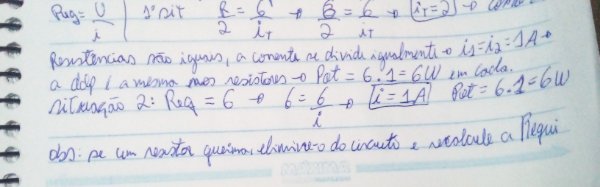 Req = U/i | 1º sit R/2 = 6/iT → 6/2 = 6/iT → iT = 2 →
Resistências são iguais, a corrente se divide igualmente → i1 = i2 = 1A →
a ddp é a mesma nos resistores → Pot = 6.1 = 6W em cada.
situação 2: Req = 6 → 6 = 6/i → i = 1A Pot = 6.1 = 6W
obs: se um resistor queima, elimine-o do circuito e recalcule a Requi